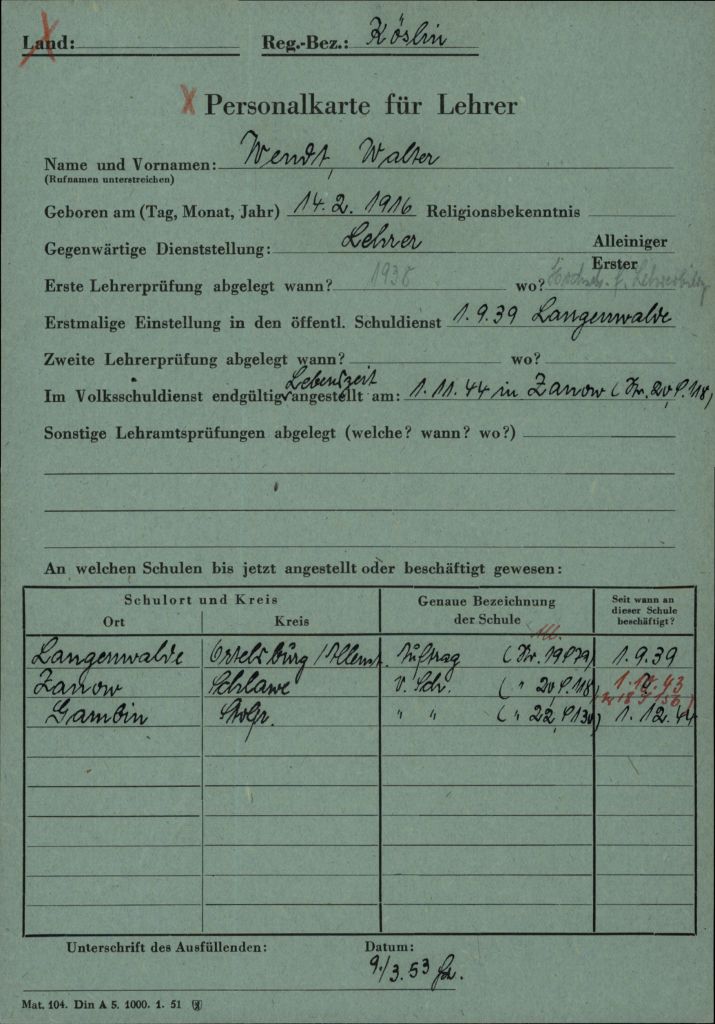 Land: Reg.-Bez.: Köslin
Personalkarte für Lehrer
Name und Vornamen: Wendt, Walter
(Rufnamen unterstreichen)
Geboren am (Tag, Monat, Jahr) 14.2.1916 Religionsbekenntnis
Gegenwärtige Dienststellung: Lehrer Alleiniger
Erster
Erste Lehrerprüfung abgelegt wann? 1938 wo? Hochsch. f. Lehrerbildg
Erstmalige Einstellung in den öffentl. Schuldienst 1.9.39 Langenwalde
Zweite Lehrerprüfung abgelegt wann? wo?
Lebenszeit
Im Volksschuldienst endgültig angestellt am: 1.11.44 in Zanow (Nr. 20, S. 118)
Sonstige Lehramtsprüfungen abgelegt (welche? wann? wo?)
An welchen Schulen bis jetzt angestellt oder beschäftigt gewesen:
Schulort und Kreis Genaue Bezeichnung der Schule Seit wann an dieser Schule beschäftigt?
Ort Kreis
All.
Langenwalde Ortelsburg/Allenst. Auftrag (Nr. 19 S. 79) 1.9.39
Zanow Schlawe V. Sch. (" 20, S. 118) 43
Gambin Stolp. " " (" 22, S. 130) 1.12.44
Unterschrift des Ausfüllenden: Datum:
9./3.53
Mat. 104. Din A 5. 1000. 1. 51